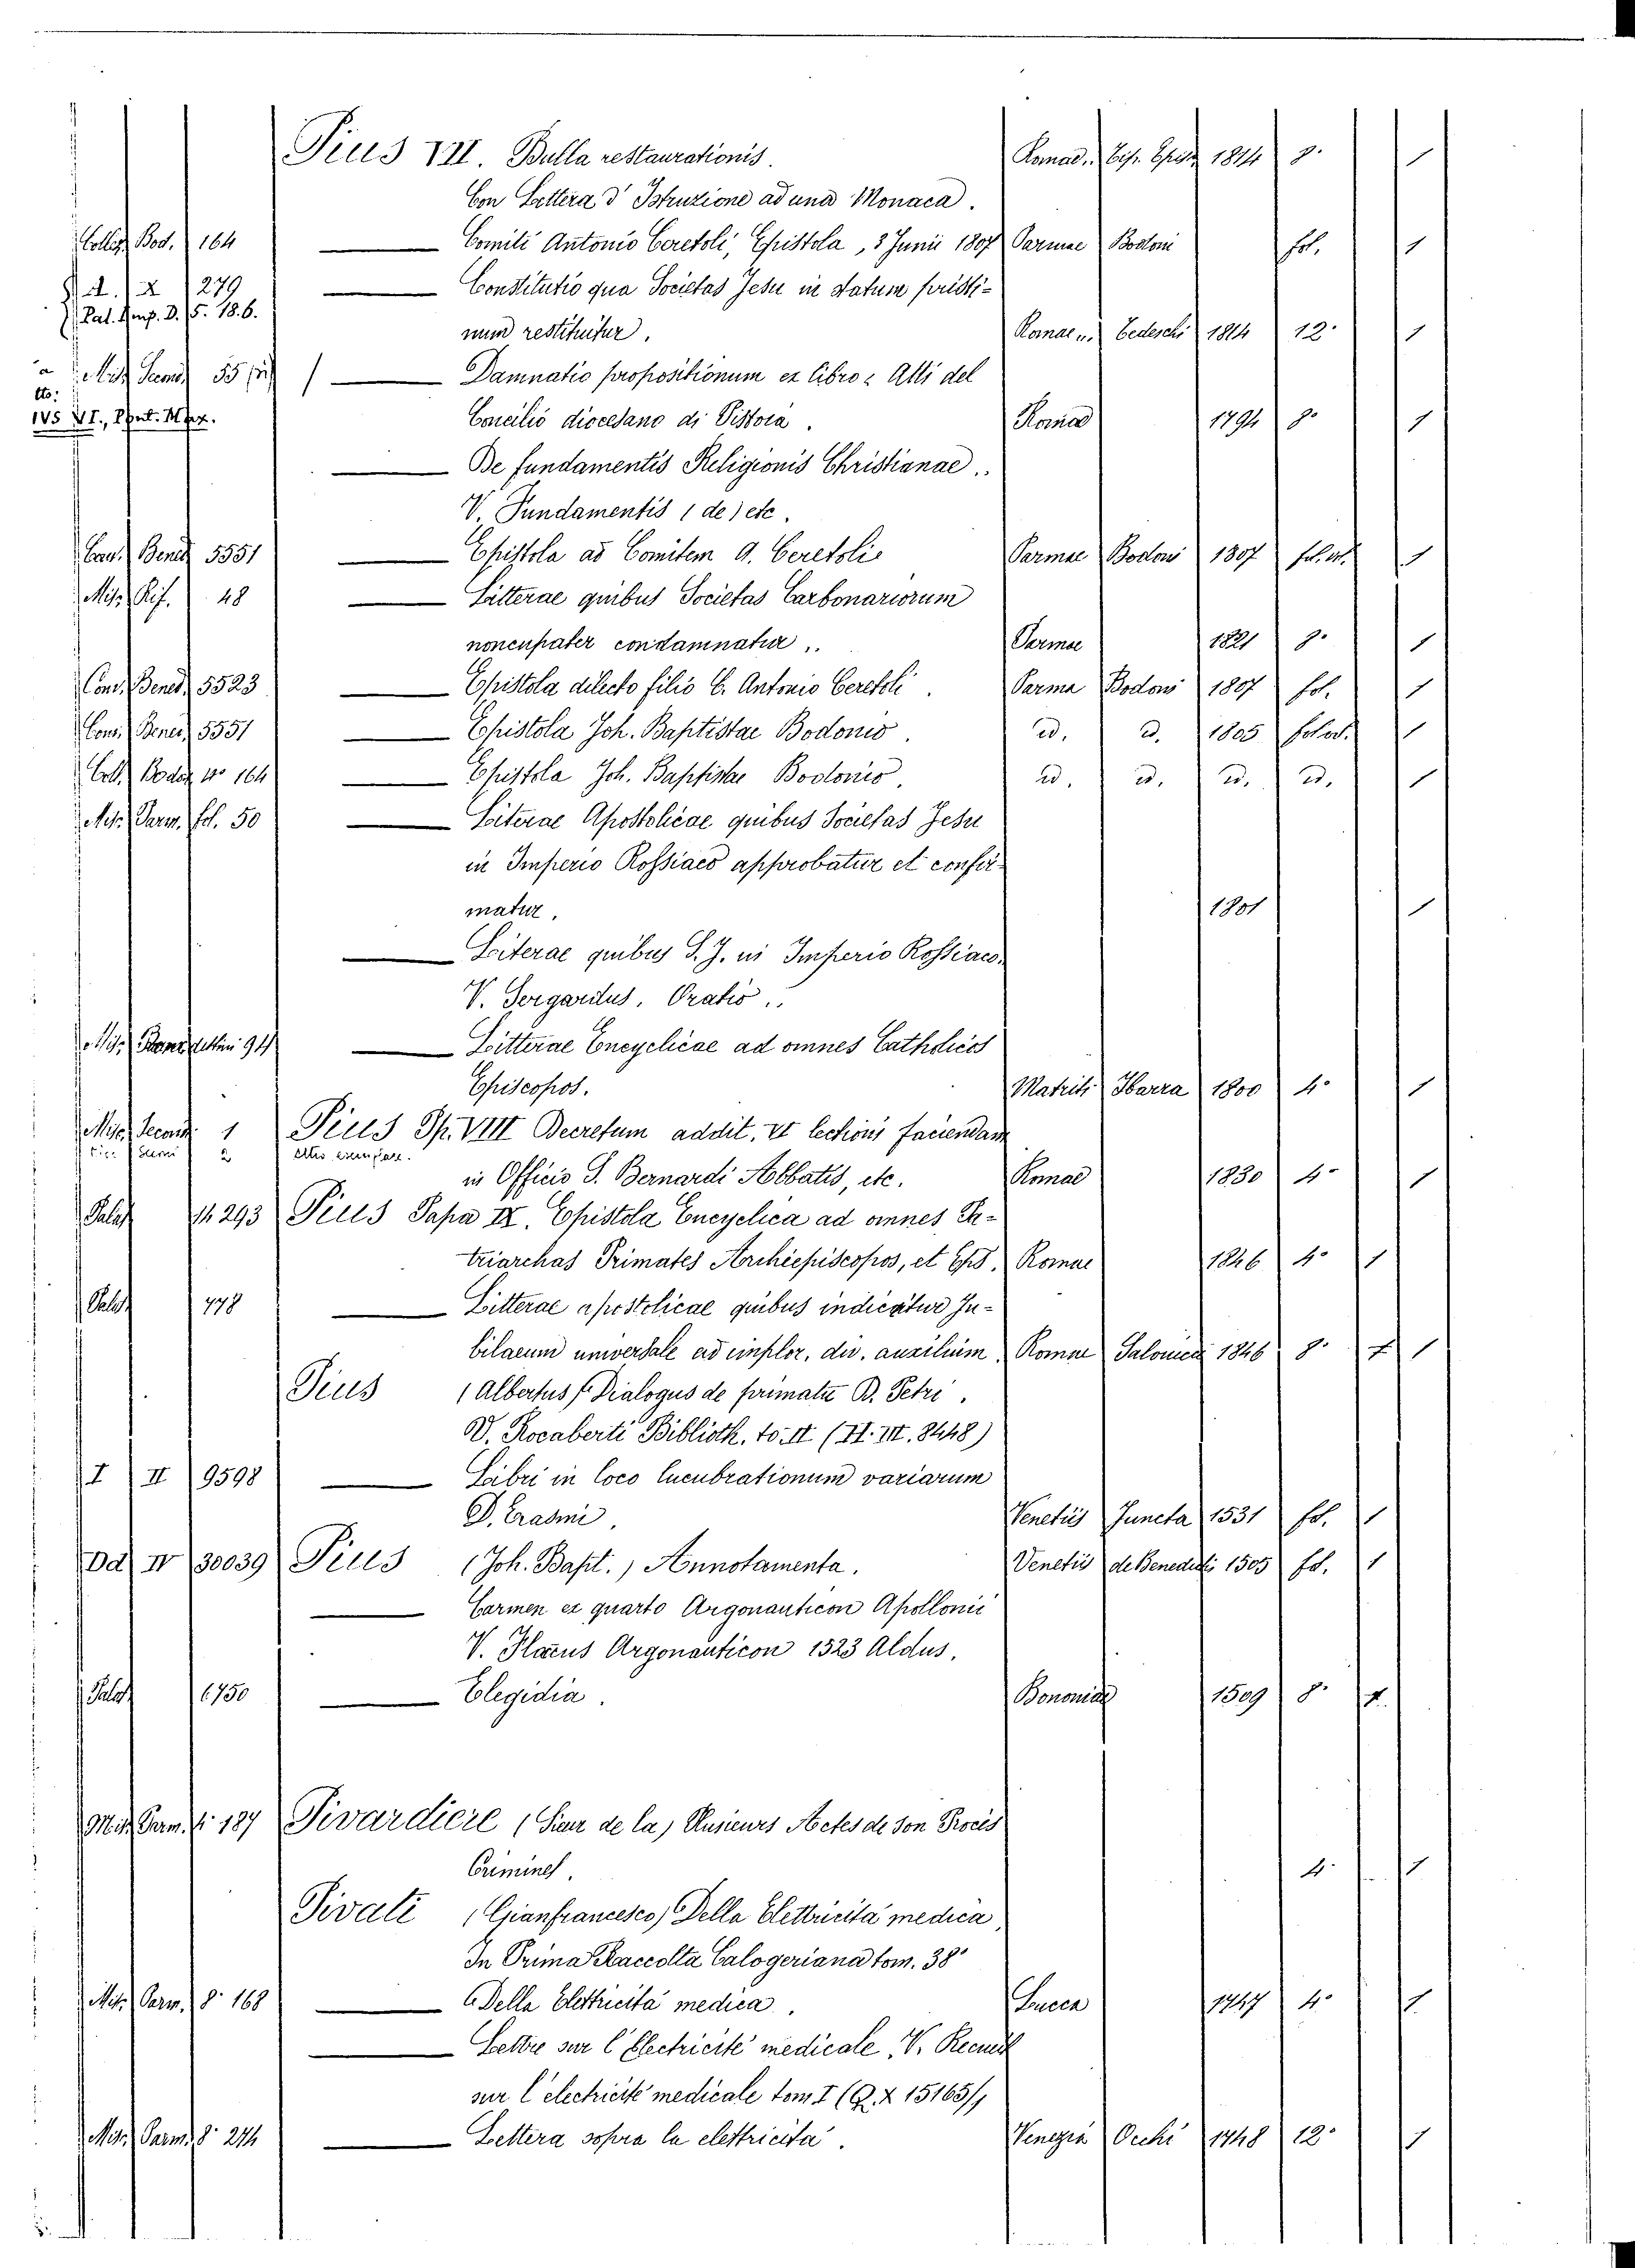 Pius VII. Bulla restaurationis. Romae. 1814 8.° 1
Con Lettera d' Istruzione ad una Monaca.
Collez. Bod. 164 Comiti Antonio Ceretoli, Epistola, 3 Junii 1807 Parmae Bodoni fol. 1
279 Constitutio qua Societas Jesu in statum pristi-
Pal. 5. 186.
num restituitur. Romae Cedeschi 1814 12.° 1
Misc. 55 Damnatio propositionum ex libro: Atti del
IVS VI., Pont. Max. Concilio diocesano di Pistoia. Romae 1794 8.° 1
De fundamentis Religionis Christianae..
V. Fundamentis (de) etc.
Bened. 5551 Epistola ad Comitem A. Ceretoli Parmae Bodoni 1807 1
Misc. Rif. 48 Litterae quibus Societas Carbonariorum
noncupater condamnatur.. Parmae 1821 8.° 1
Cons. Bened. 5523 Epistola dilecto filio C. Antonio Ceretoli. Parma Bodoni 1807 fol. 1
Cons. Bened. 5551 Epistola Joh. Baptistae Bodonio. id. id. 1805 1
Coll. Bodoz n° 164 Epistola Joh. Baptistae Bodonio. id. id. id. id. 1
Misc. Parm. fol. 50 Literae Apostolicae quibus Societas Jesu
in Imperio Rossiaco approbatur et confir-
matur. 1801 1
Literae quibus S. J. in Imperio Rossiaco,
V. Sergardus. Oratio..
Misc. 94 Litterae Encyclicae ad omnes Catholicos
Episcopos. Matriti Ibarra 1800 4.° 1
Misc. 1 Pius Pp. VIII Decretum addit. et lectionis faciendam
2 altro esemplare.
in Officio S. Bernardi Abbatis, etc. Romae 1830 4.° 1
Palat. 14293 Pius Papa IX. Epistola Encyclica ad omnes Pa-
triarchas Primates Archiepiscopos, et Eps. Romae 1846 4.° 1
Palat. 778 Litterae apostolicae quibus indicatur Ju-
bilaeum universale ad implor. div. auxilium. Romae 1846 8.° 1
Pius (Albertus) Dialogus de primatu B. Petri.
V. Rocaberti Biblioth. to. II (II. III. 8448)
I II 9598 Libri in loco lucubrationum variarum
D. Erasmi. Venetiis Juncta 1531 fol. 1
Dd IV 30039 Pius (Joh. Bapt.) Annotamenta. Venetiis de Benedictis 1505 fol. 1
Carmen ex quarto Argonauticon Apollonii
V. Flacus Argonauticon 1523 Aldus.
Palat. 6750 Elegidia. Bononiae 1509 8.° 1.
Misc. Parm. 4.° 187 Pivardiere (Sieur de la) Plusieurs Actes de son Procès
Criminel. 4.° 1
Pivati (Gianfrancesco) Della Elettricità medica
In Prima Raccolta Calogeriana tom. 38°
Misc. Parm. 8.° 168 Della Elettricità medica. Lucca 1747 4.° 1
Lettre sur l'Electricité medicale V. Recueil
sur l'electricité medicale tom. I (Q. X 15165)
Misc. Parm. 8.° 244 Lettera sopra la elettricità. Venezia Occhi 1748 12.° 1